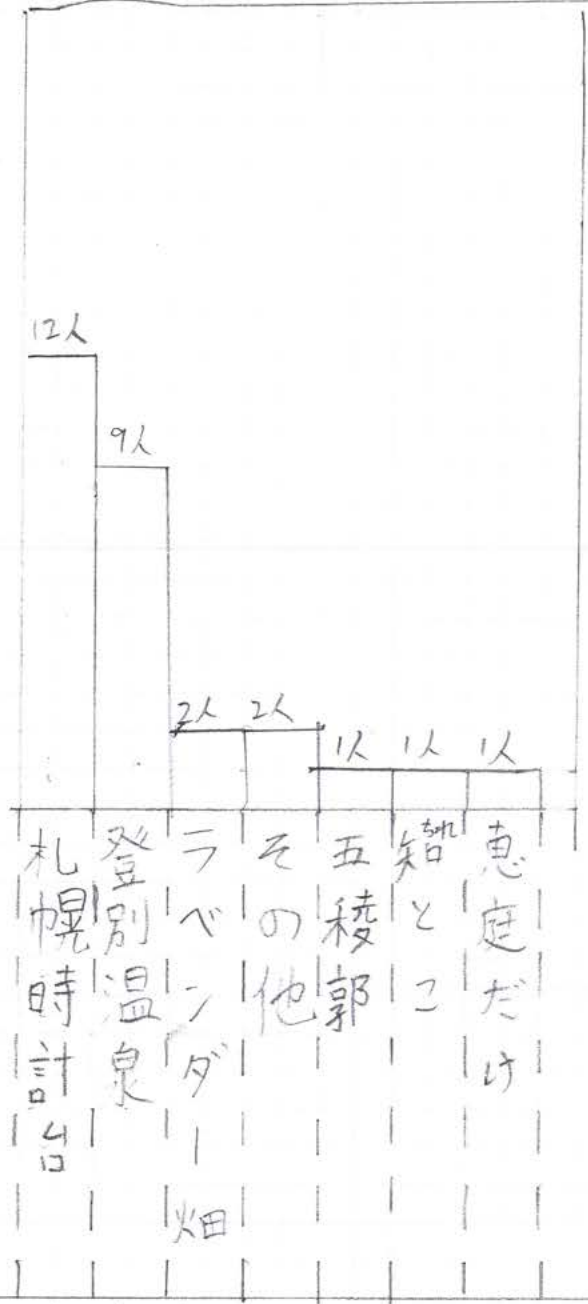 12人
9人
2人
2人
1人
1人
1人
札幌時計台
登別温泉
ラベンダー畑
その他
五稜郭
知とこ
恵庭だけ